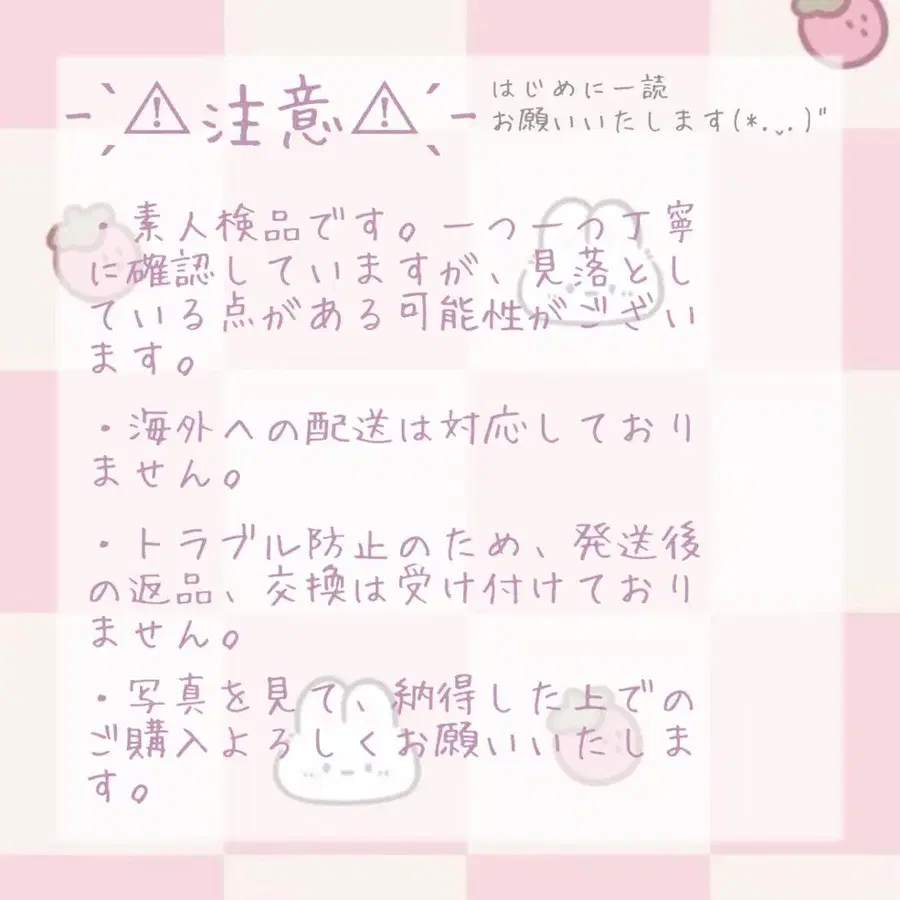 ⚠注意⚠
はじめに一読
お願いいたします(*.ˬ.)"
・素人検品です。一つ一つ丁寧
に確認していますが、見落とし
ている点がある可能性がござい
ます。
・海外への配送は対応しており
ません。
・トラブル防止のため、発送後
の返品、交換は受け付けており
ません。
・写真を見て、納得した上での
ご購入よろしくお願いいたしま
す。